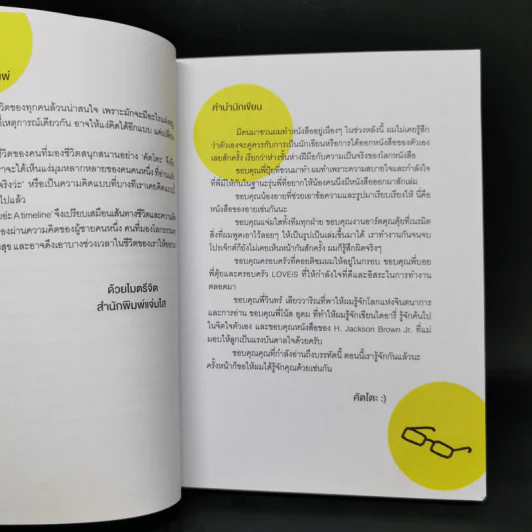 ชีวิตของทุกคนล้วนน่าสนใจ เพราะมักจะมีอะไร
เหตุการณ์เดียวกัน อาจให้แง่คิดได้อีกแบบ
ชีวิตของคนที่มองชีวิตสนุกสนานอย่าง 'คัตโตะ'
จะได้เห็นแง่มุมหลากหลายของคนคนหนึ่ง
จริงว่ะ' หรือเป็นความคิดแบบที่บางทีเราเคยคิด
ไปแล้ว
A timeline' จึงเปรียบเสมือนเส้นทางชีวิตและ
ผ่านความคิดของผู้ชายคนหนึ่ง คนที่มองโลก
สุข และอาจดึงเอาบางช่วงเวลาในชีวิตของเราให้
ด้วยไมตรีจิต
สำนักพิมพ์แจ่มใส
คำนำนักเขียน
มีคนมาชวนผมทำหนังสืออยู่เนืองๆ ในช่วงหลังนี้ ผมไม่เคยรู้สึก
ว่าตัวเองจะคู่ควรกับการเป็นนักเขียนหรือการได้ออกหนังสือของตัวเอง
เลยสักครั้ง เรียกว่าห่างชั้นห่างฝีมือกับความเป็นจริงของโลกหนังสือ
ขอบคุณพี่ปุ้ยที่ชวนมาทำ ผมทำเพราะความสบายใจและกำลังใจ
ที่พี่มีให้กันในฐานะรุ่นพี่ที่อยากให้น้องคนนึงมีหนังสือออกมาสักเล่ม
ขอบคุณน้องอายที่ช่วยเอาข้อความและรูปมาเรียบเรียงให้ นี่คือ
หนังสือของอายเช่นกันนะ
ขอบคุณแจ่มใสทั้งทีมทุกฝ่าย ขอบคุณงานอาร์ตคุณตุ้ยที่เนรมิต
สิ่งที่ผมพูดเอาไว้ลอยๆ ให้เป็นรูปเป็นเล่มขึ้นมาได้ เราทำงานกันจนจบ
โปรเจ็กต์ก็ยังไม่เคยเห็นหน้ากันสักครั้ง ผมก็รู้สึกผิดจริงๆ
ขอบคุณครอบครัวที่คอยติชมผมให้อยู่ในกรอบ ขอบคุณพี่บอย
พี่ตุ้ยและครอบครัว LOVEiS ที่ให้กำลังใจที่ดีและอิสระในการทำงาน
ตลอดมา
ขอบคุณพี่วินทร์ เลียววาริณที่พาให้ผมรู้จักโลกแห่งจินตนาการ
และการอ่าน ขอบคุณพี่โน้ส อุดม ที่ทำให้ผมรู้จักเขียนไดอารี่ รู้จักค้นไป
ในจิตใจตัวเอง และขอบคุณหนังสือของ H. Jackson Brown Jr. ที่แม่
มอบให้ลูกเป็นแรงบันดาลใจด้วยครับ
ขอบคุณคุณที่กำลังอ่านถึงบรรทัดนี้ ตอนนี้เรารู้จักกันแล้วนะ
ครั้งหน้าก็ขอให้ผมได้รู้จักคุณด้วยเช่นกัน
คัตโตะ :)